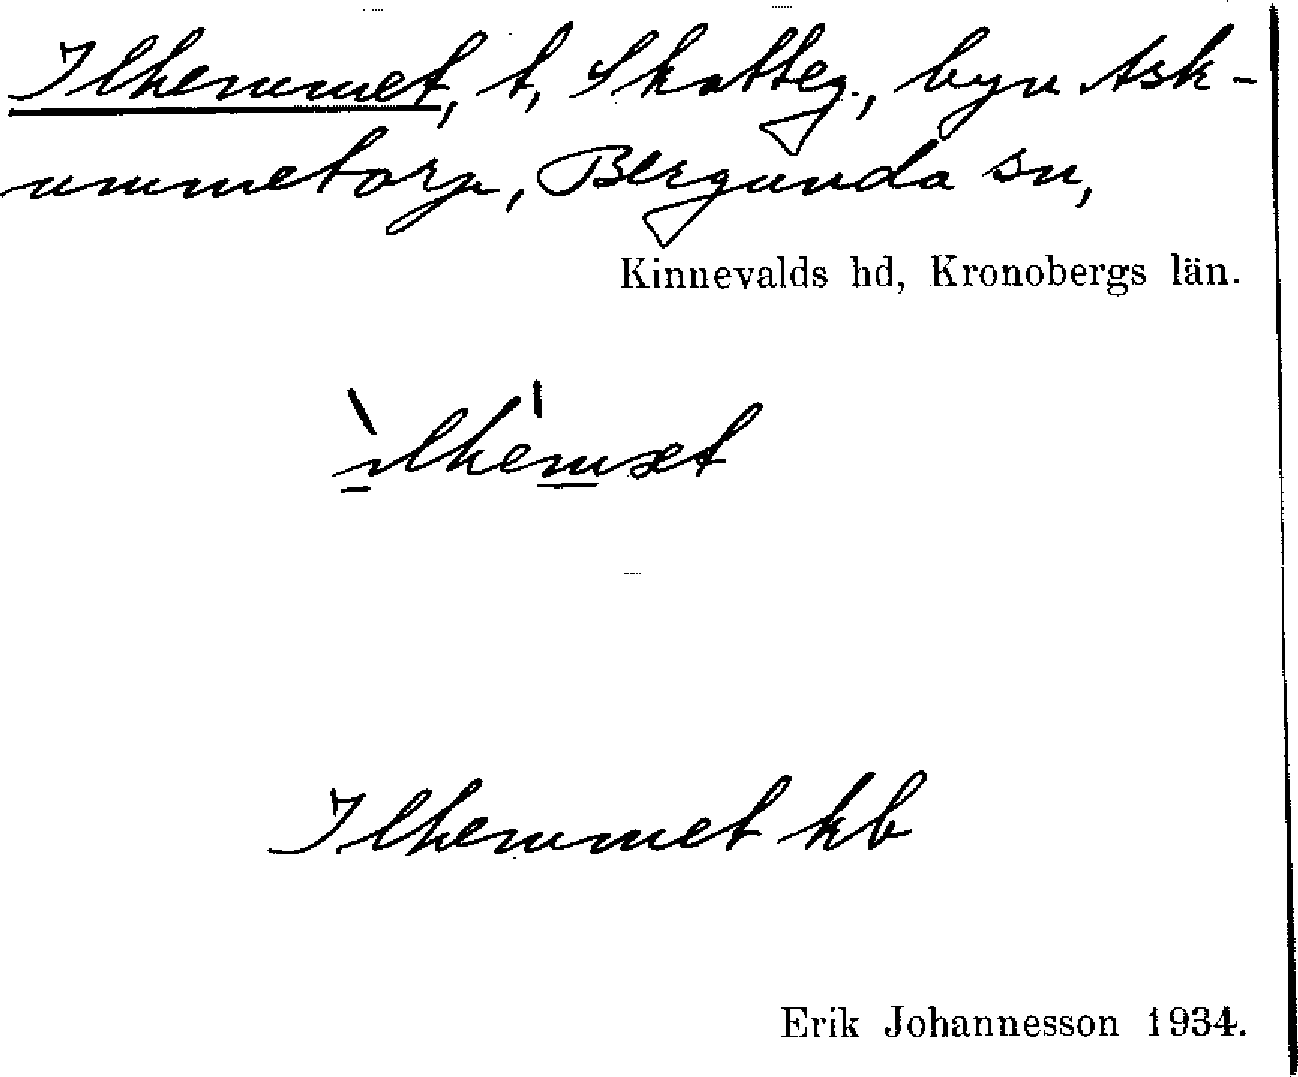 Ilhemmet, t, Skatteg., byn Ask-
ummetorp, Bergunda sn,
Kinnevalds hd, Kronobergs län.
ìlhémset
Ilhemmet kb
Erik Johannesson 1934.